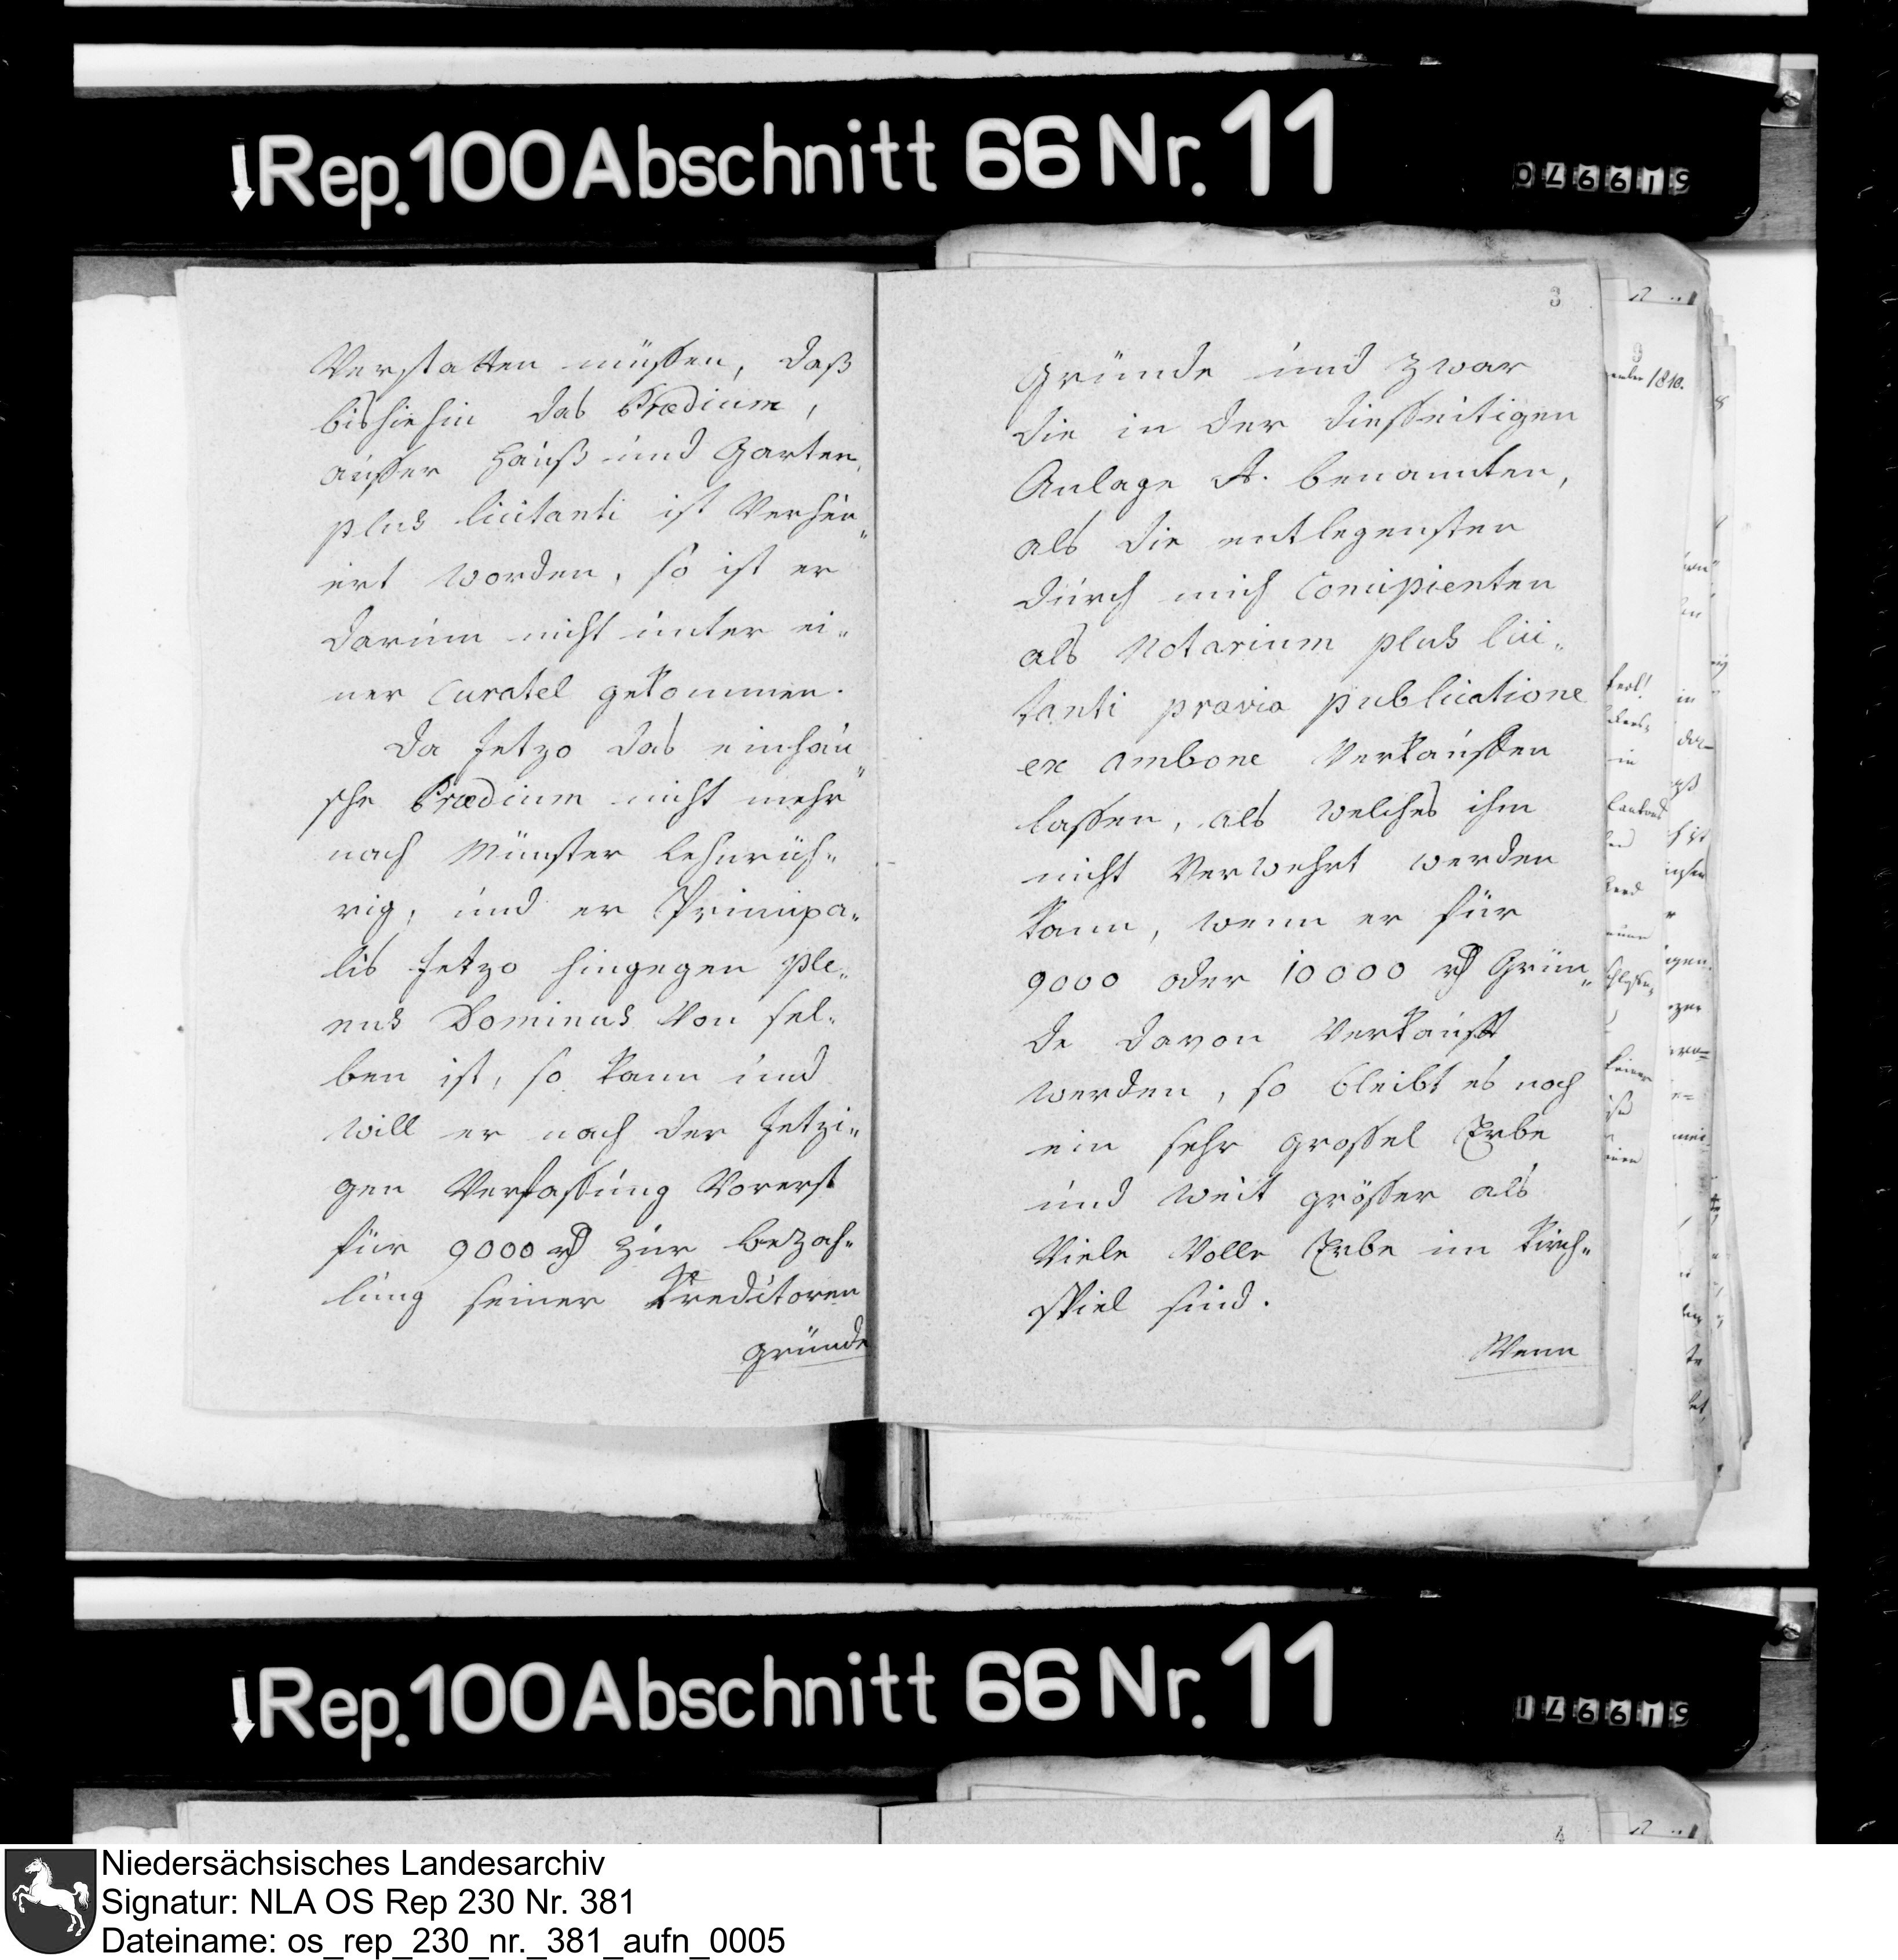 Rep. 100 Abschnitt 66 Nr. 11
046619
Verstatten müssen, daß
bishiehin das Prædium,
ausser Hauß und Garten,
plus licitanti ist Verheu„
ert worden, so ist er
darum nicht unter ei„
ner Curatel gekommen.
Da Jetzo das einhau„
sche Prædium nicht mehr
nach Münster lehnrüh„
rig, und er Principa„
lis Jetzo hingegen ple„
nus Dominus Von sel„
ben ist, so kann und
will er nach der Jetzi„
gen Verfassung Vorerst
für 9000 rth zur bezah„
lung seiner Kreditoren
gründe
3
gründe und zwar
die in der diesseitigen
Anlage A. benannten,
als die entlegensten
durch mich Concipienten
als Notarium plus lici„
tanti pravia publicatione
ex ambone Verkauffen
lassen, als welches ihm
nicht Verwehrt werden
kann, wenn er für
9000 oder 10000 rth Grün„
de davon Verkaufft
werden, so bleibt es noch
ein sehr grosses Erbe
und weit grösser als
Viele Volle Erbe im Kirch„
spiel sind.
Wenn
1810.
Rep. 100 Abschnitt 66 Nr. 11
4
Niedersächsisches Landesarchiv
Signatur: NLA OS Rep 230 Nr. 381
Dateiname: os_rep_230_nr._381_aufn_0005